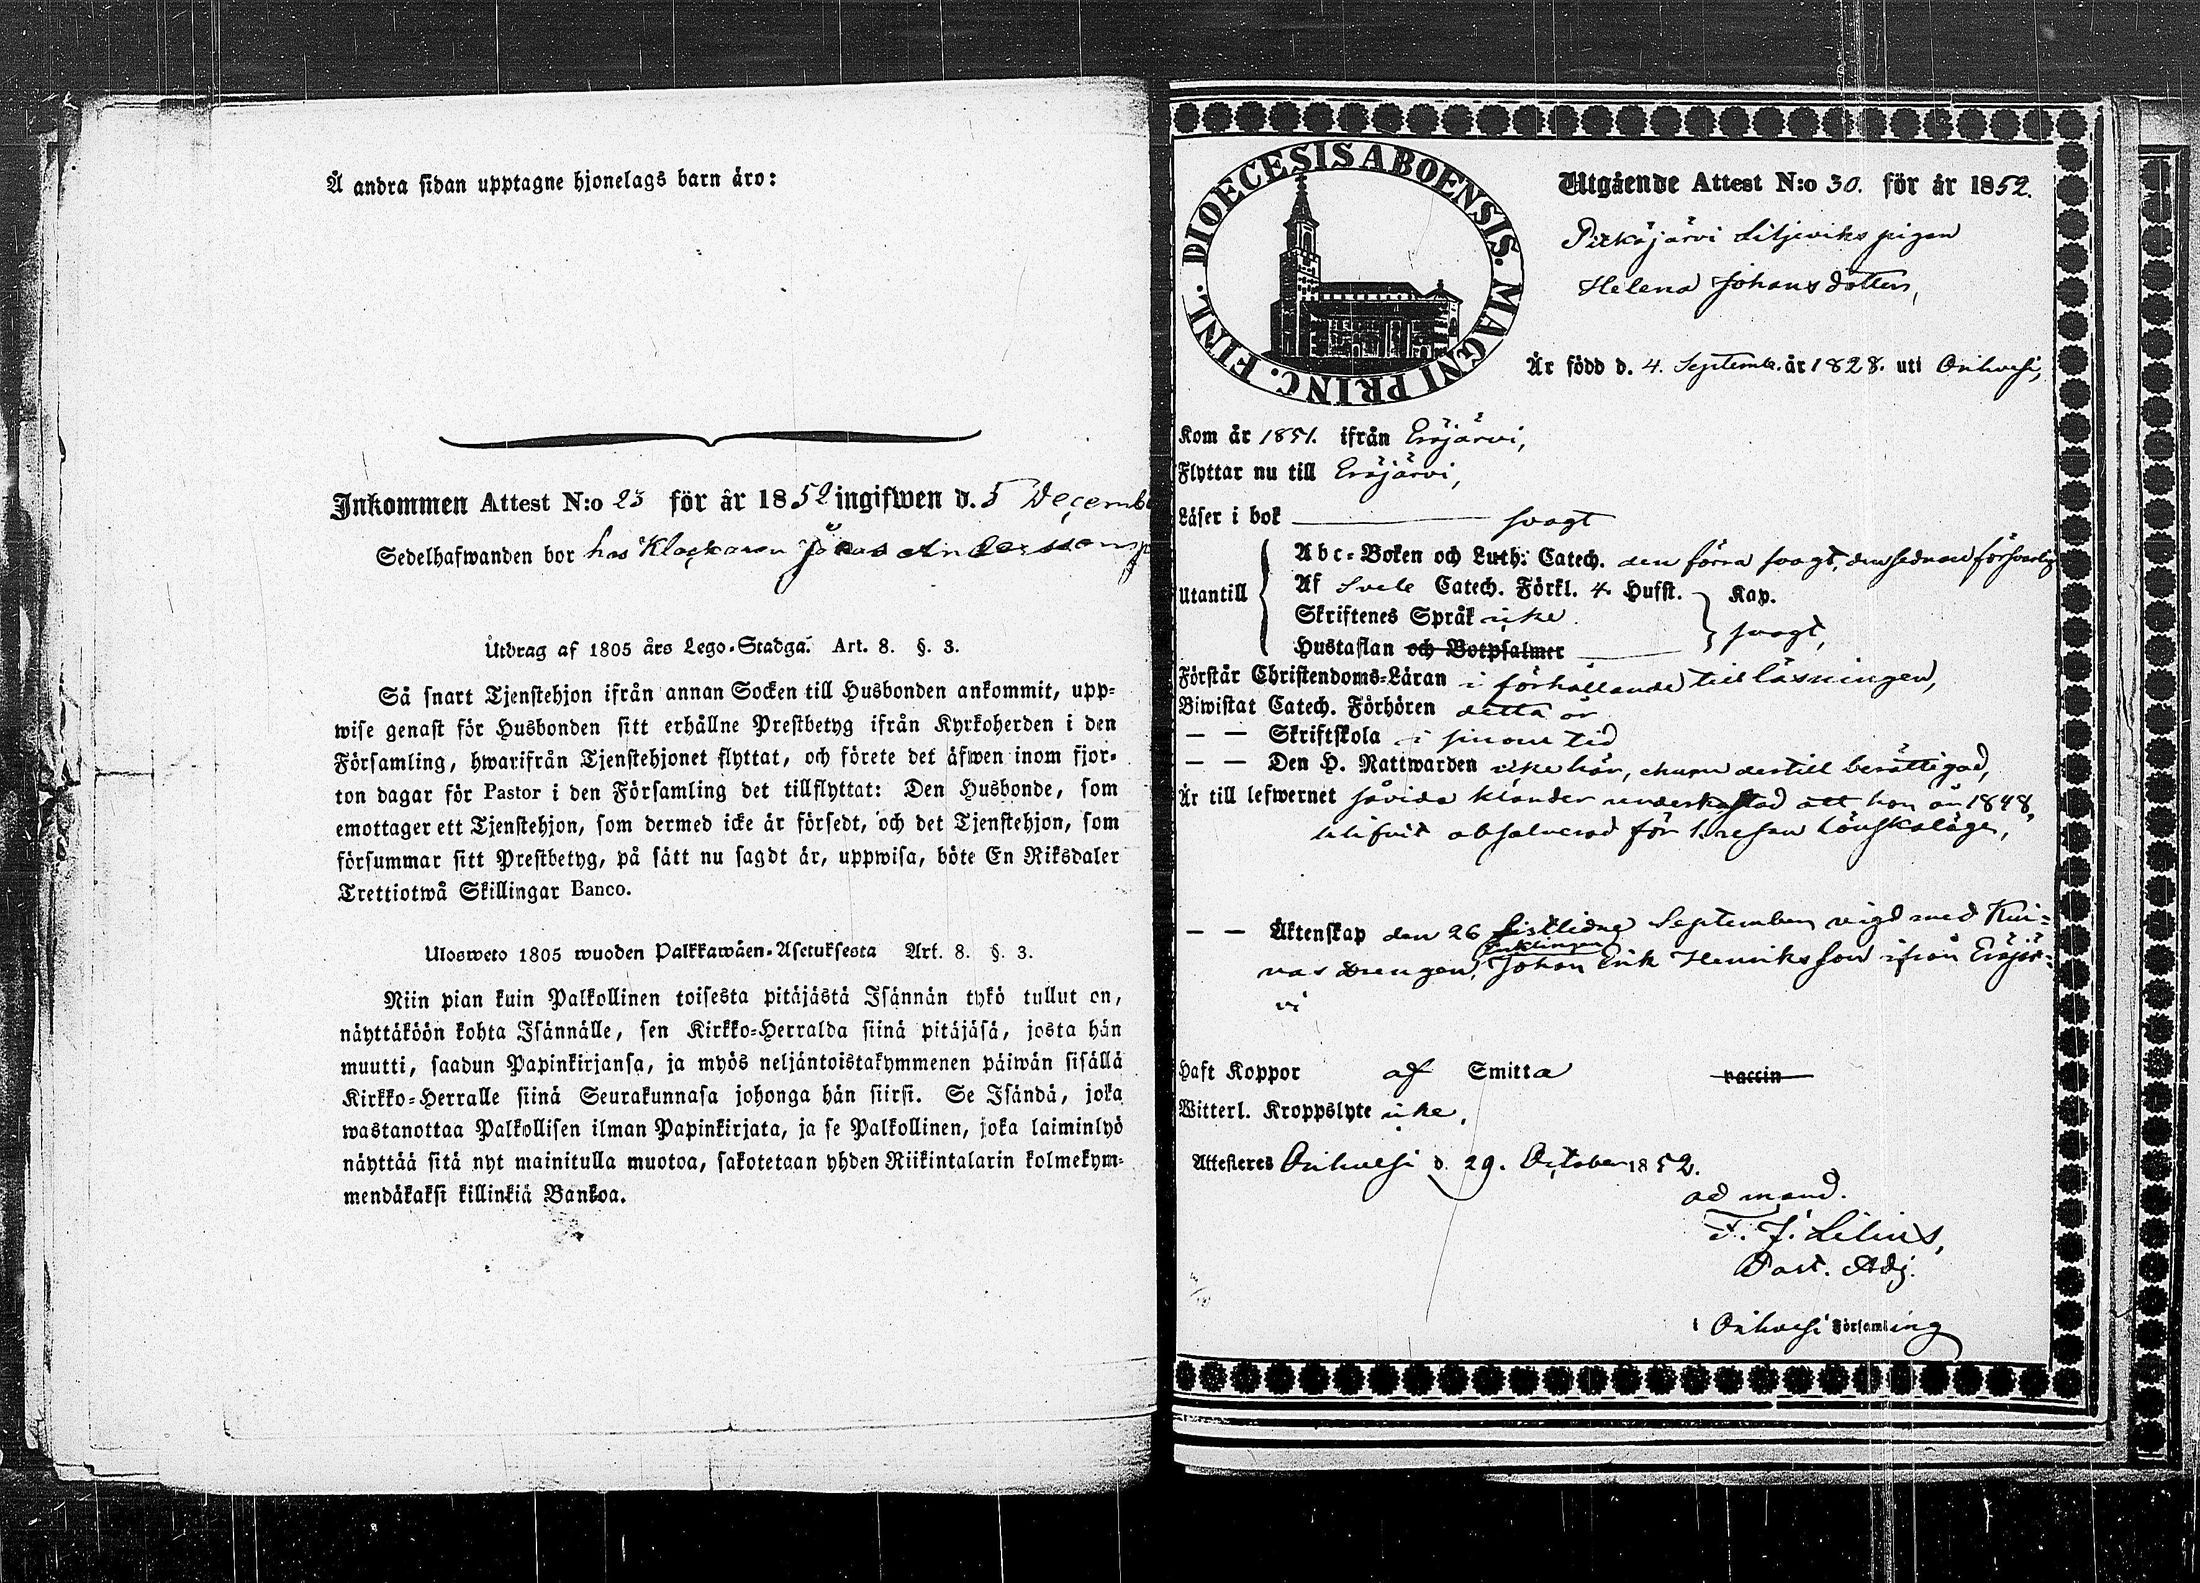 Å andra sidan upptagne hjonelags barn äro:
Inkommen Attest N:o 23 för år 1852 ingifwen d. 5 Decembe
Sedelhafwanden bor hos Klockaren Jonas Andersson
Utdrag af 1805 års Lego-Stadga. Art. 8. §. 3.
Så snart Tjenstehjon ifrån annan Socken till Husbonden ankommit, upp-
wise genast för Husbonden sitt erhållne Prestbetyg ifrån Kyrkoherden i den
Församling, hwarifrån Tjenstehjonet flyttat, och förete det äfwen inom fjor-
ton dagar för Pastor i den Församling det tillflyttat: Den Husbonde, som
emottager ett Tjenstehjon, som dermed icke är försedt, och det Tjenstehjon, som
försummar sitt Prestbetyg, på sätt nu sagdt är, uppwisa, böte En Riksdaler
Trettiotwå Skillingar Banco.
Ulosweto 1805 wuoden Palkkawäen-Asetuksesta Art. 8. §. 3.
Niin pian kuin Palkollinen toisesta pitäjästä Isännän tykö tullut on,
näyttäköön kohta Isännälle, sen Kirkko-Herralda siinä pitäjäsä, josta hän
muutti, saadun Papinkirjansa, ja myös neljäntoistakymmenen päiwän sisällä
Kirkko-Herralle siinä Seurakunnasa johonga hän siirsi. Se Isändä, joka
wastanottaa Palkollisen ilman Papinkirjata, ja se Palkollinen, joka laiminlyö
näyttää sitä nyt mainitulla muotoa, sakotetaan yhden Riikintalarin kolmekym-
mendäkaksi killinkiä Bankoa.
DIOECESIS ABOENSIS. MAGNI PRINC. FINL.
Utgående Attest N:o 30. för år 1852.
Pitkäjärvi Liljeviks pigan
Helena Johansdotter,
Är född d. 4. Septemb. år 1828. uti Orihvesi,
Kom år 1851. ifrån Eräjärvi,
Flyttar nu till Eräjärvi,
Läser i bok svagt
Utantill
Abc-Boken och Luth: Catech. den förra svagt, den sednare försvarlig
Af Sveb. Catech. Förkl. 4. Hufst. Kap.
Skriftenes Språk icke.
Hustaflan och Botpsalmer svagt,
Förstår Christendoms-Läran i förhållande till läsningen,
Biwistat Catech. Förhören detta år
— — Skriftskola i sinom tid
— — Den H. Nattwarden icke här, ehuru dertill berättigad,
Är till lefwernet såvida klander underkastad att hon år 1848,
blifvit absolverad för 1. resan lönskaläge,
— — Äktenskap den 26 sistlidne September vigd med Kui-
vas drengen, Enklingen Johan Erik Henriksson ifrån Eräjär-
vi
Haft Koppor af Smitta vaccin
Witterl. Kroppslyte icke,
Attesteres Orihvesi d. 29. October 1852.
ad mand.
F. J. Lilius,
Past. Adj.
i Orihvesi Församling